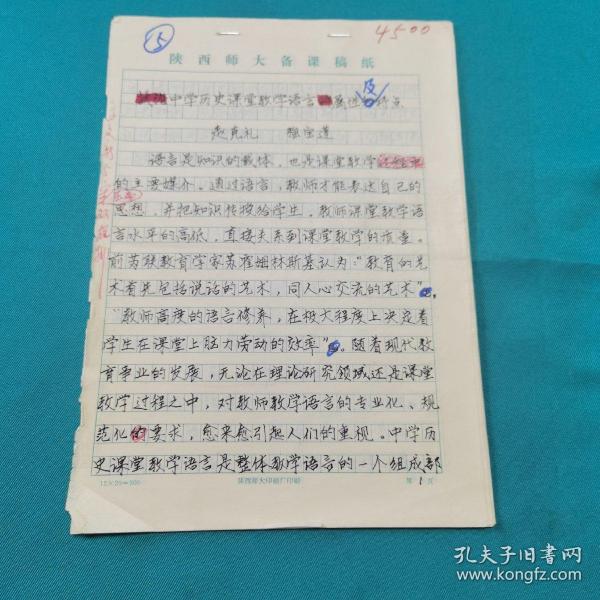 ⑤
4500
陕西师大备课稿纸
中学历史课堂教学语言属性及特点
赵克礼
语言是知识的载体，也是课堂教学
的主要媒介。通过语言，教师才能表达自己的
思想，并把知识传授给学生，教师课堂教学语
言水平的高低，直接关系到课堂教学的质量。
前苏联教育学家苏霍姆林斯基认为："教育的艺
术首先包括说话的艺术，同人心交流的艺术"。
"教师高度的语言修养，在极大程度上决定着
学生在课堂上脑力劳动的效率"。随着现代教
育事业的发展，无论在理论研究领域还是课堂
教学过程之中，对教师教学语言的专业化、规
范化的要求，愈来愈引起人们的重视。中学历
史课堂教学语言是整体教学语言的一个组成部
陕西师大印刷厂印刷
第1页
孔夫子旧书网
www.kongfz.com